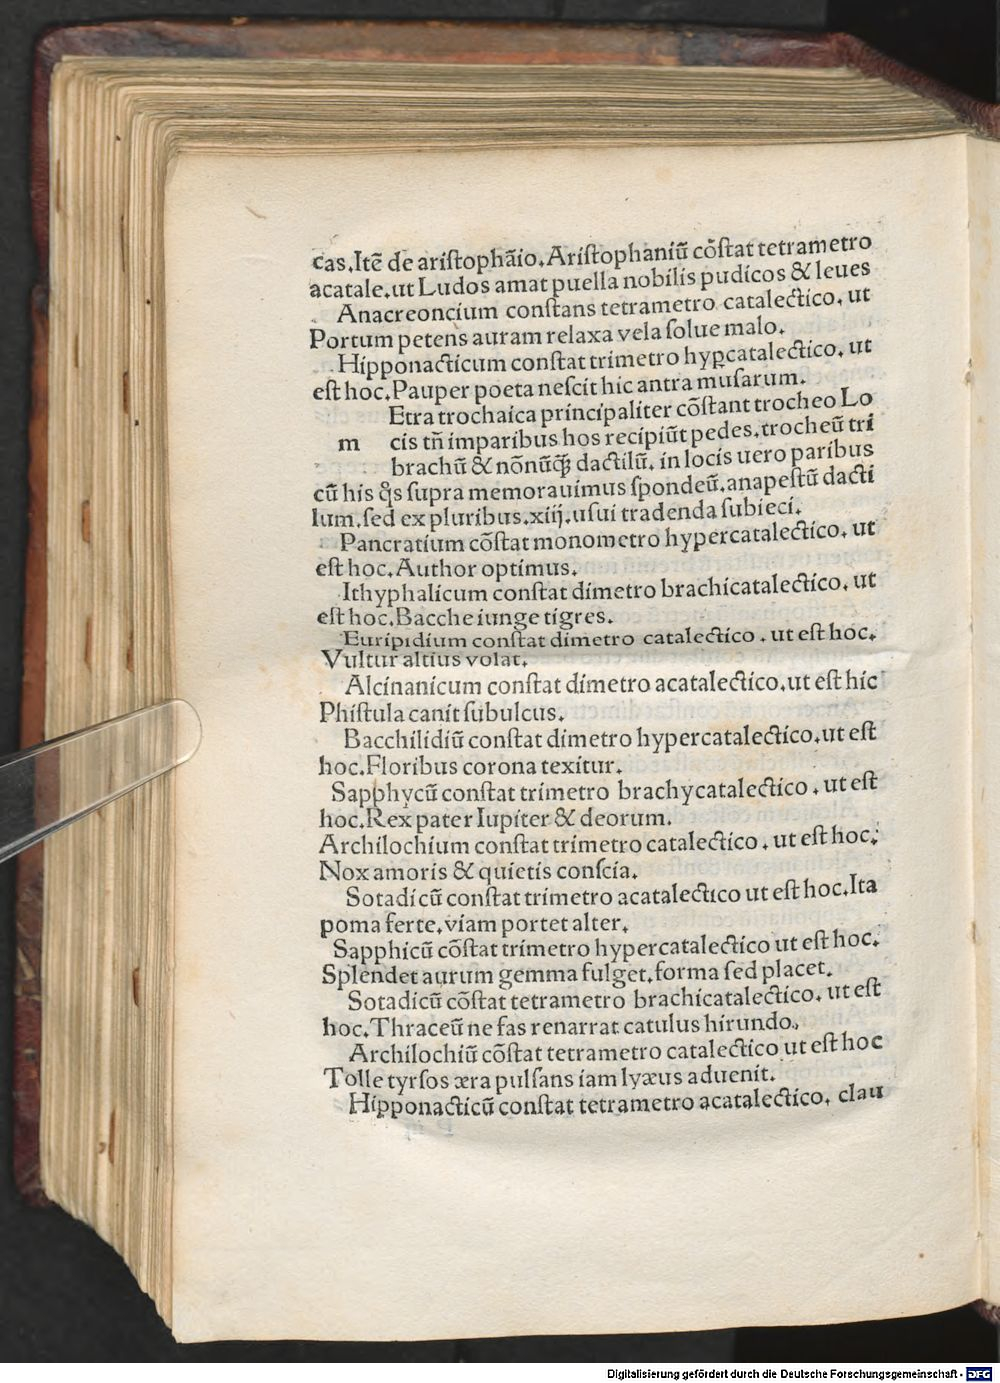 cas.Itē de aristophāio.Aristophaniū cōstat tetrametro
acatale.ut Ludos amat puella nobilis pudicos & leues
Anacreoncium constans tetrametro catalectico. ut
Portum petens auram relaxa vela solue malo.
Hipponacticum constat trimetro hyꝑcatalectico. ut
est hoc.Pauper poeta nescit hic antra musarum.
Etra trochaica principaliter cōstant trocheo Lo
m cis tn̄ imparibus hos recipiūt pedes.trocheū tri
brachū & nōnūꝙ̄ dactilū. in locis uero paribus
cū his q̄s supra memorauimus spondeū.anapestū dacti
lum.sed ex pluribus.xiij.usui tradenda subieci.
Pancratium cōstat monometro hypercatalectico. ut
est hoc.Author optimus.
Ithyphalicum constat dimetro brachicatalectico. ut
est hoc.Bacche iunge tigres.
Euripidium constat dimetro catalectico . ut est hoc.
Vultur altius volat.
Alcinanicum constat dimetro acatalectico.ut est hic
Phistula canit subulcus.
Bacchilidiū constat dimetro hypercatalectico.ut est
hoc.Floribus corona texitur.
Sapphycū constat trimetro brachycatalectico . ut est
hoc.Rex pater Iupiter & deorum.
Archilochium constat trimetro catalectico . ut est hoc.
Nox amoris & quietis conscia.
Sotadicū constat trimetro acatalectico ut est hoc.Ita
poma ferte.viam portet alter.
Sapphicū cōstat trimetro hypercatalectico ut est hoc.
Splendet aurum gemma fulget.forma sed placet.
Sotadicū cōstat tetrametro brachicatalectico. ut est
hoc.Thraceū ne fas renarrat catulus hirundo.
Archilochiū cōstat tetrametro catalectico ut est hoc
Tolle tyrsos æra pulsans iam lyæus aduenit.
Hipponacticū constat tetrametro acatalectico. clau
Digitalisierung gefördert durch die Deutsche Forschungsgemeinschaft - DFG